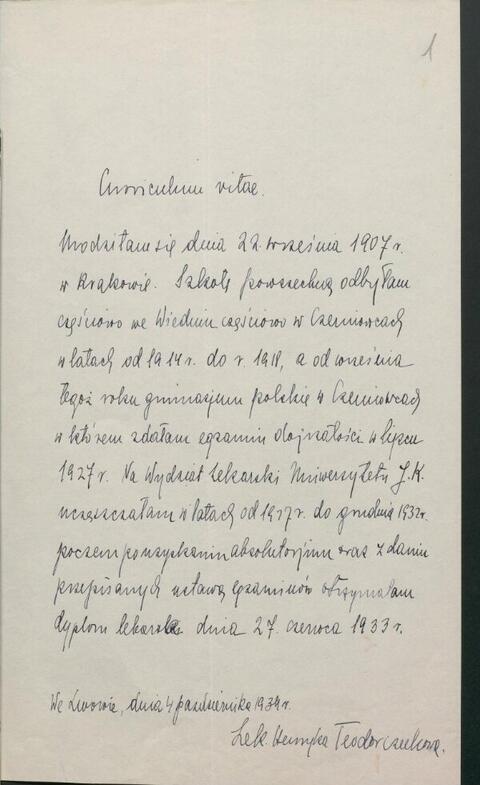 1
Curriculum vitae.
Urodziłam się dnia 22. września 1907 r.
w Krakowie. Szkołę powszechną odbyłam
częściowo we Wiedniu częściowo w Czerniowcach
w latach od 1914 r. do r. 1918, a od września
tegoż roku gimnazjum polskie w Czerniowcach
w którem zdałam egzamin dojrzałości w lipcu
1927 r. Na Wydział Lekarski Uniwersytetu J. K.
uczęszczałam w latach od 1927 r. do grudnia 1932 r.
poczem po uzyskaniu absolutorjum oraz zdaniu
przepisanych ustawą egzaminów otrzymałam
dyplom lekarza dnia 27. czerwca 1933 r.
We Lwowie, dnia 4 października 1934 r.
Lek. Henryka Teodorczukowa.